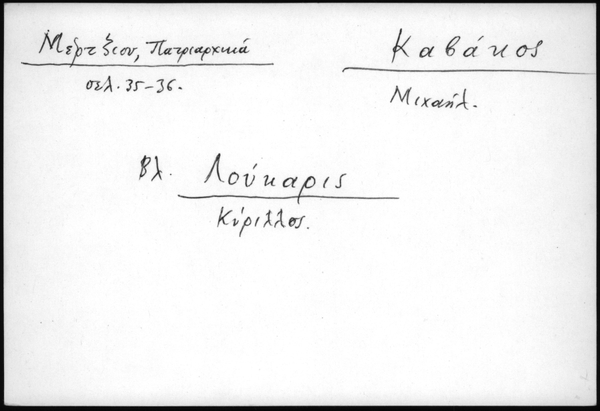 Μέρτζιου, Πατριαρχικά
σελ. 35-36.
Καβάκος
Μιχαήλ.
Βλ. Λούκαρις
Κύριλλος.